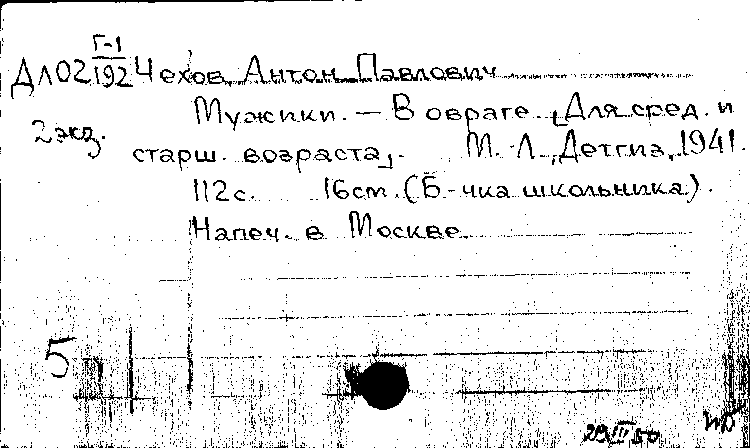 Г-1
Дл02 192 Чехов, Антон Павлович
2 экз.
Мужики. — В овраге. [Для сред. и
старш. возраста]. М.-Л., Детгиз, 1941.
112 с. 16 см. (Б-чка школьника).
Напеч. в Москве.
5
29 III 50